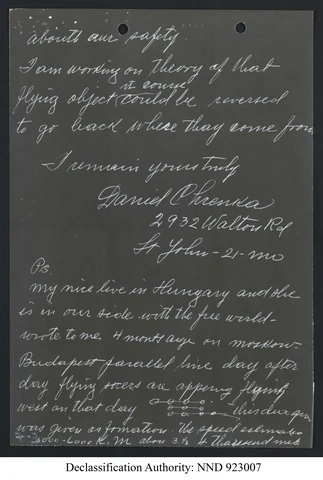 abouth our safety
I am working on theory of that
flying object it course could be reversed
to go back where thay come from
I remain yours truly
Daniel Chrenka
2932 Walton Rd
St John - 21 - Mo
Ps.
my nice live in Hungary and she
is in our side with the free world -
wrote to me 4 month ago on moskow-
Budapest parallel line day after
day flying socers are appering flying
west on that day this diagram
was given as formation. the speed estimated
3000-6000 K. M abou 3½
Declassification Authority: NND 923007